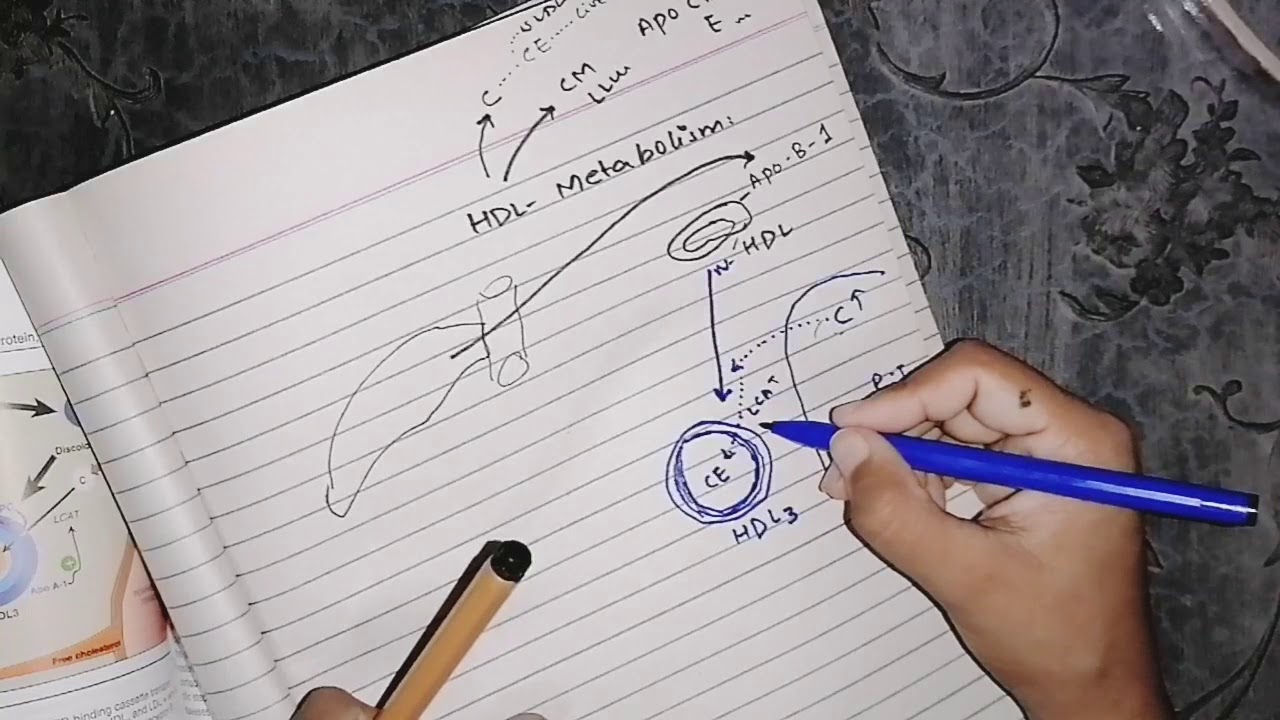 CE
APO C
E
C
CM
HDL- Metabolism:
Apo-B-1
N-HDL
C↑
LCAT
CE
HDL3
rotein,
Discoid
C
LCAT
Apo A-1
DL3
Free cholesterol
binding cassette
and LDL